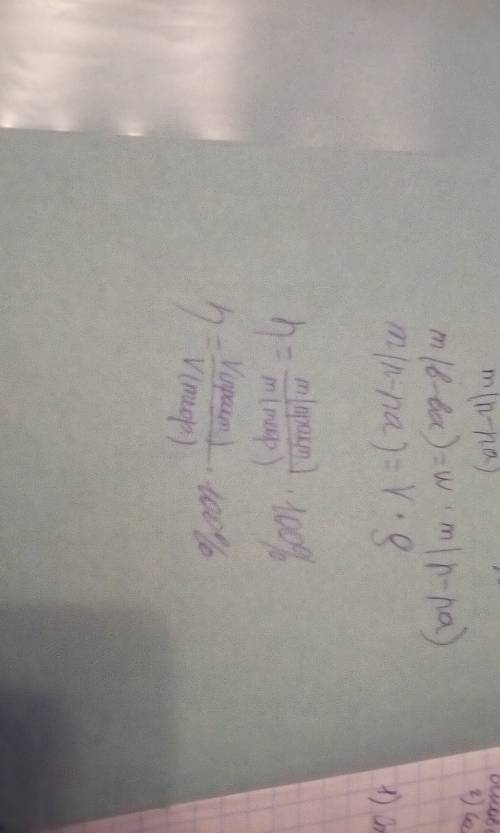 m(р-ра)
m(в-ва) = w · m(р-ра)
m(р-ра) = V · ρ
η = m(практ) / m(теор) · 100%
η = V(практ) / V(теор) · 100%
1)
2)